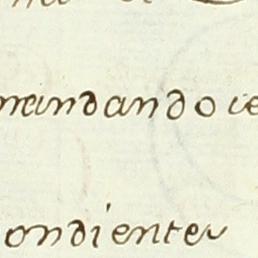 mandando ce
ondientes